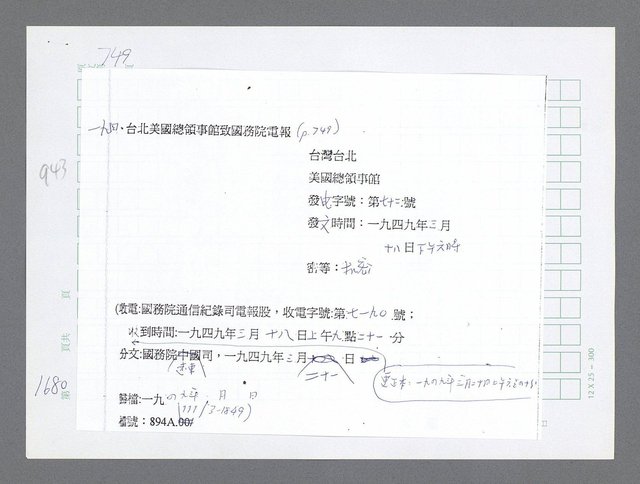 749
一九四、台北美國總領事館致國務院電報(p.749)
台灣台北
美國總領事館
943
發電字號：第七十三號
發文時間：一九四九年三月
十八日下午六時
密等：機密
頁
(收電:國務院通信紀錄司電報股，收電字號:第七一九〇號；
收到時間:一九四九年三月十八日上午九點二十一分
頁共
分文:國務院中國司，一九四九年三月 日
遠東
二十一
更正本：一九四九年三月二十四日
1680
第
歸檔:一九四九年 月 日
(111/3-1849)
檔號：894A.00/
12X25-300